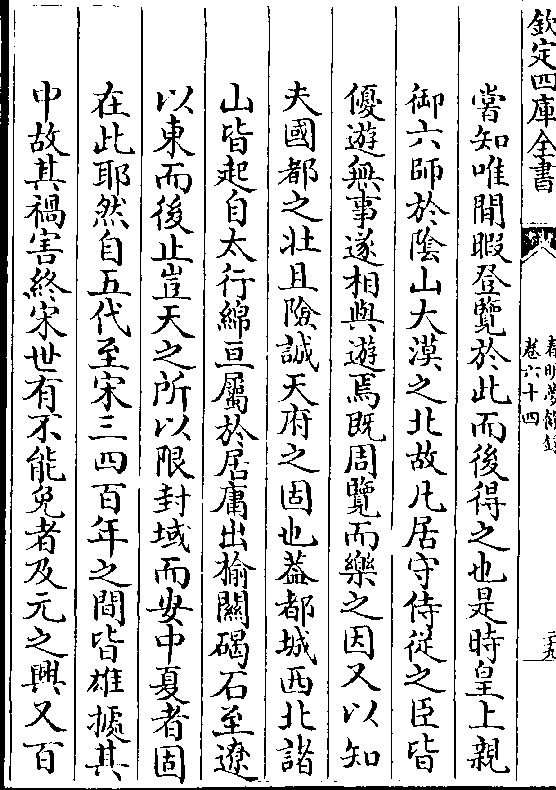 欽定四庫全書
春明夢餘錄
卷六十四
二十九
嘗知唯閒暇登覽於此而後得之也是時皇上親
御六師於陰山大漠之北故凡居守侍從之臣皆
優遊無事遂相與遊焉既周覽而樂之因又以知
夫國都之壯且險誠天府之固也葢都城西北諸
山皆起自太行綿亘屬於居庸出榆關碣石至遼
以東而後止豈天之所以限封域而安中夏者固
在此耶然自五代至宋三四百年之間皆雄據其
中故其禍害終宋世有不能免者及元之興又百